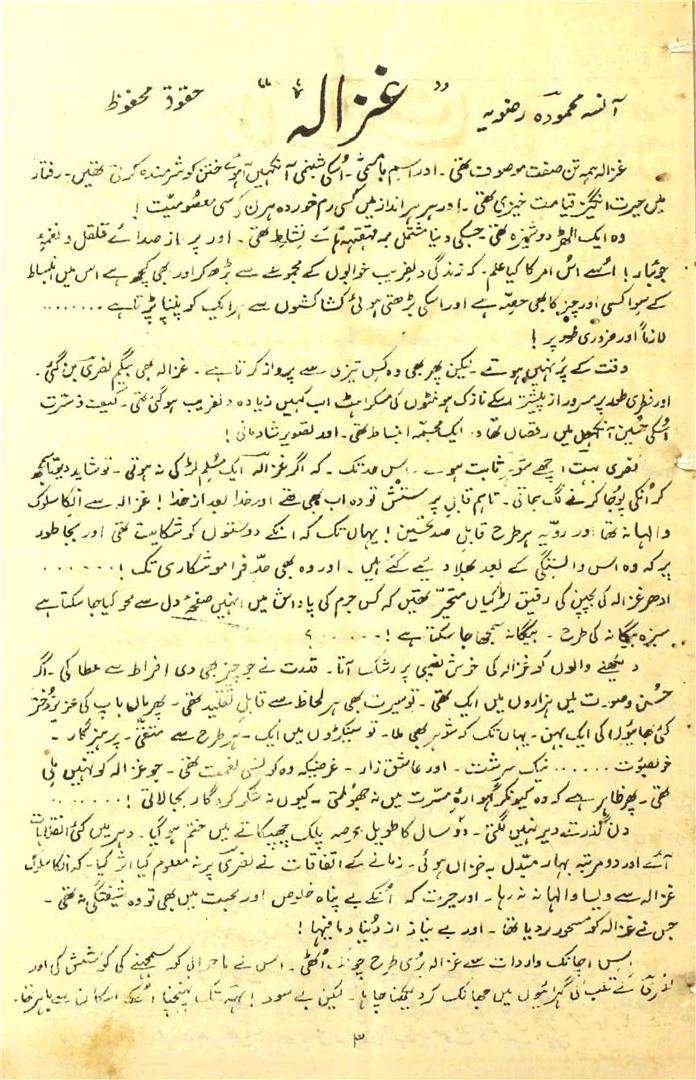 آنسہ محمودہ رضویہ
"غزالہ"
حقوق محفوظ
غزالہ ہمہ تن صفت موصوف تھی۔ اور اسم بامسمّٰی۔ اُسکی شبنمی آنکھیں آہوئے ختن کو شرمندہ کرتی تھیں۔ رفتار
میں حیرت انگیز قیامت خیزی تھی۔ اور ہر ہر انداز میں کسی رم خوردہ ہرن کی سی معصومیت!
وہ ایک الھڑ دوشیزہ تھی جسکی دنیا مشتمل بر قہقہہ ہائے نشاط تھی۔ اور پر از صدائے قلقل و نغمۂ
جوئبار! اُسے اس امر کا کیا علم۔ کہ زندگی دلفریب خوابوں کے مجموعے سے بڑھ کر اور بھی کچھ ہے اس میں انبساط
کے سوا کسی اور چیز کا بھی حصہ ہے اور اسکی بڑھتی ہوئی کشاکشوں سے ہر ایک کو نپٹنا پڑتا ہے ........
لازماً اور ضروری طور پر!
وقت کے پَر نہیں ہوتے۔ لیکن پھر بھی وہ کس تیزی سے پرواز کرتا ہے۔ غزالہ بھی بیگم نصری بن گئی۔
اور فطری طور پر مسرور از پیشتر اسکے نازک ہونٹوں کی مسکراہٹ اب کہیں زیادہ دلفریب ہوگئی تھی۔ کیف و مسرت
اُسکی حسین آنکھوں میں رقصاں تھا وہ ایک مجسمۂ انبساط تھی۔ اور تصویر شادمانی!
نصری بہت اچھے شوہر ثابت ہوئے۔ اس حد تک۔ کہ اگر غزالہ ایک مسلم لڑکی نہ ہوتی۔ تو شاید دیوتا سمجھ
کر اُنکی پوجا کرنے لگ جاتی۔ تاہم قابل پرستش تو وہ اب بھی تھے اور خدا بعد از خدا! غزالہ سے انکا سلوک
والہانہ تھا اور رویہ ہر طرح قابل صد تحسین! یہاں تک کہ انکے دوستوں کو شکایت تھی اور بجا طور
پر کہ وہ اس وابستگی کے بعد بھلا دیے گئے ہیں۔ اور وہ بھی حدِّ فراموشکاری تک! ......
ادھر غزالہ کی بچپن کی رفیق لڑکیاں متحیر تھیں کہ کس جرم کی پاداش میں انہیں صفحۂ دل سے محو کیا جاسکتا ہے
سبزہ بیگانہ کی طرح۔ بیگانہ سمجھا جاسکتا ہے! ...... ؟
دیکھنے والوں کو غزالہ کی خوش نصیبی پر رشک آتا۔ قدرت نے جو چیز بھی دی افراط سے عطا کی۔ اگر
حسن و صورت میں ہزاروں میں ایک تھی۔ تو سیرت بھی ہر لحاظ سے قابل تقلید تھی۔ پھر ماں باپ کی عزیز دختر
کئی بھائیوں کی ایک بہن۔ یہاں تک کہ شوہر بھی ملا۔ تو سیکڑوں میں ایک۔ ہر طرح سے متقی۔ پرہیزگار۔
خوبصورت ...... نیک سرشت۔ اور عاشق زار۔ غرضیکہ وہ کونسی نعمت تھی۔ جو غزالہ کو نہیں ملی
تھی۔ پھر ظاہر ہے کہ وہ کیونکر گہوارۂ مسرت میں نہ جھولتی۔ کیوں نہ شکر کردگار بجا لاتی! ......
دن گذرتے دیر نہیں لگتی۔ دو سال کا طویل عرصہ پلک جھپکاتے میں ختم ہوگیا۔ دہر میں کئی انقلابات
آئے اور دو مرتبہ بہار مبدّل بہ خزاں ہوئی۔ زمانے کے اتفاقات نے نصری پر نہ معلوم کیا اثر کیا۔ کہ انکا سلوک
غزالہ سے ویسا والہانہ نہ رہا۔ اور حیرت کہ اُنکے بے پناہ خلوص اور محبت میں بھی تو وہ شیفتگی نہ تھی۔
جس نے غزالہ کو مسحور کردیا تھا۔ اور بے نیاز از دنیا و مافیہا!
اس اچانک واردات سے غزالہ بُری طرح چونک اُٹھی۔ اس نے ماجرائے کو سمجھنے کی کوشش کی اور
کے قلب کی گہرائیوں میں جھانک کر دیکھنا چاہا۔ لیکن بے سود! تہہ تک پہنچنا اُسکے امکان سے باہر تھا۔
۳